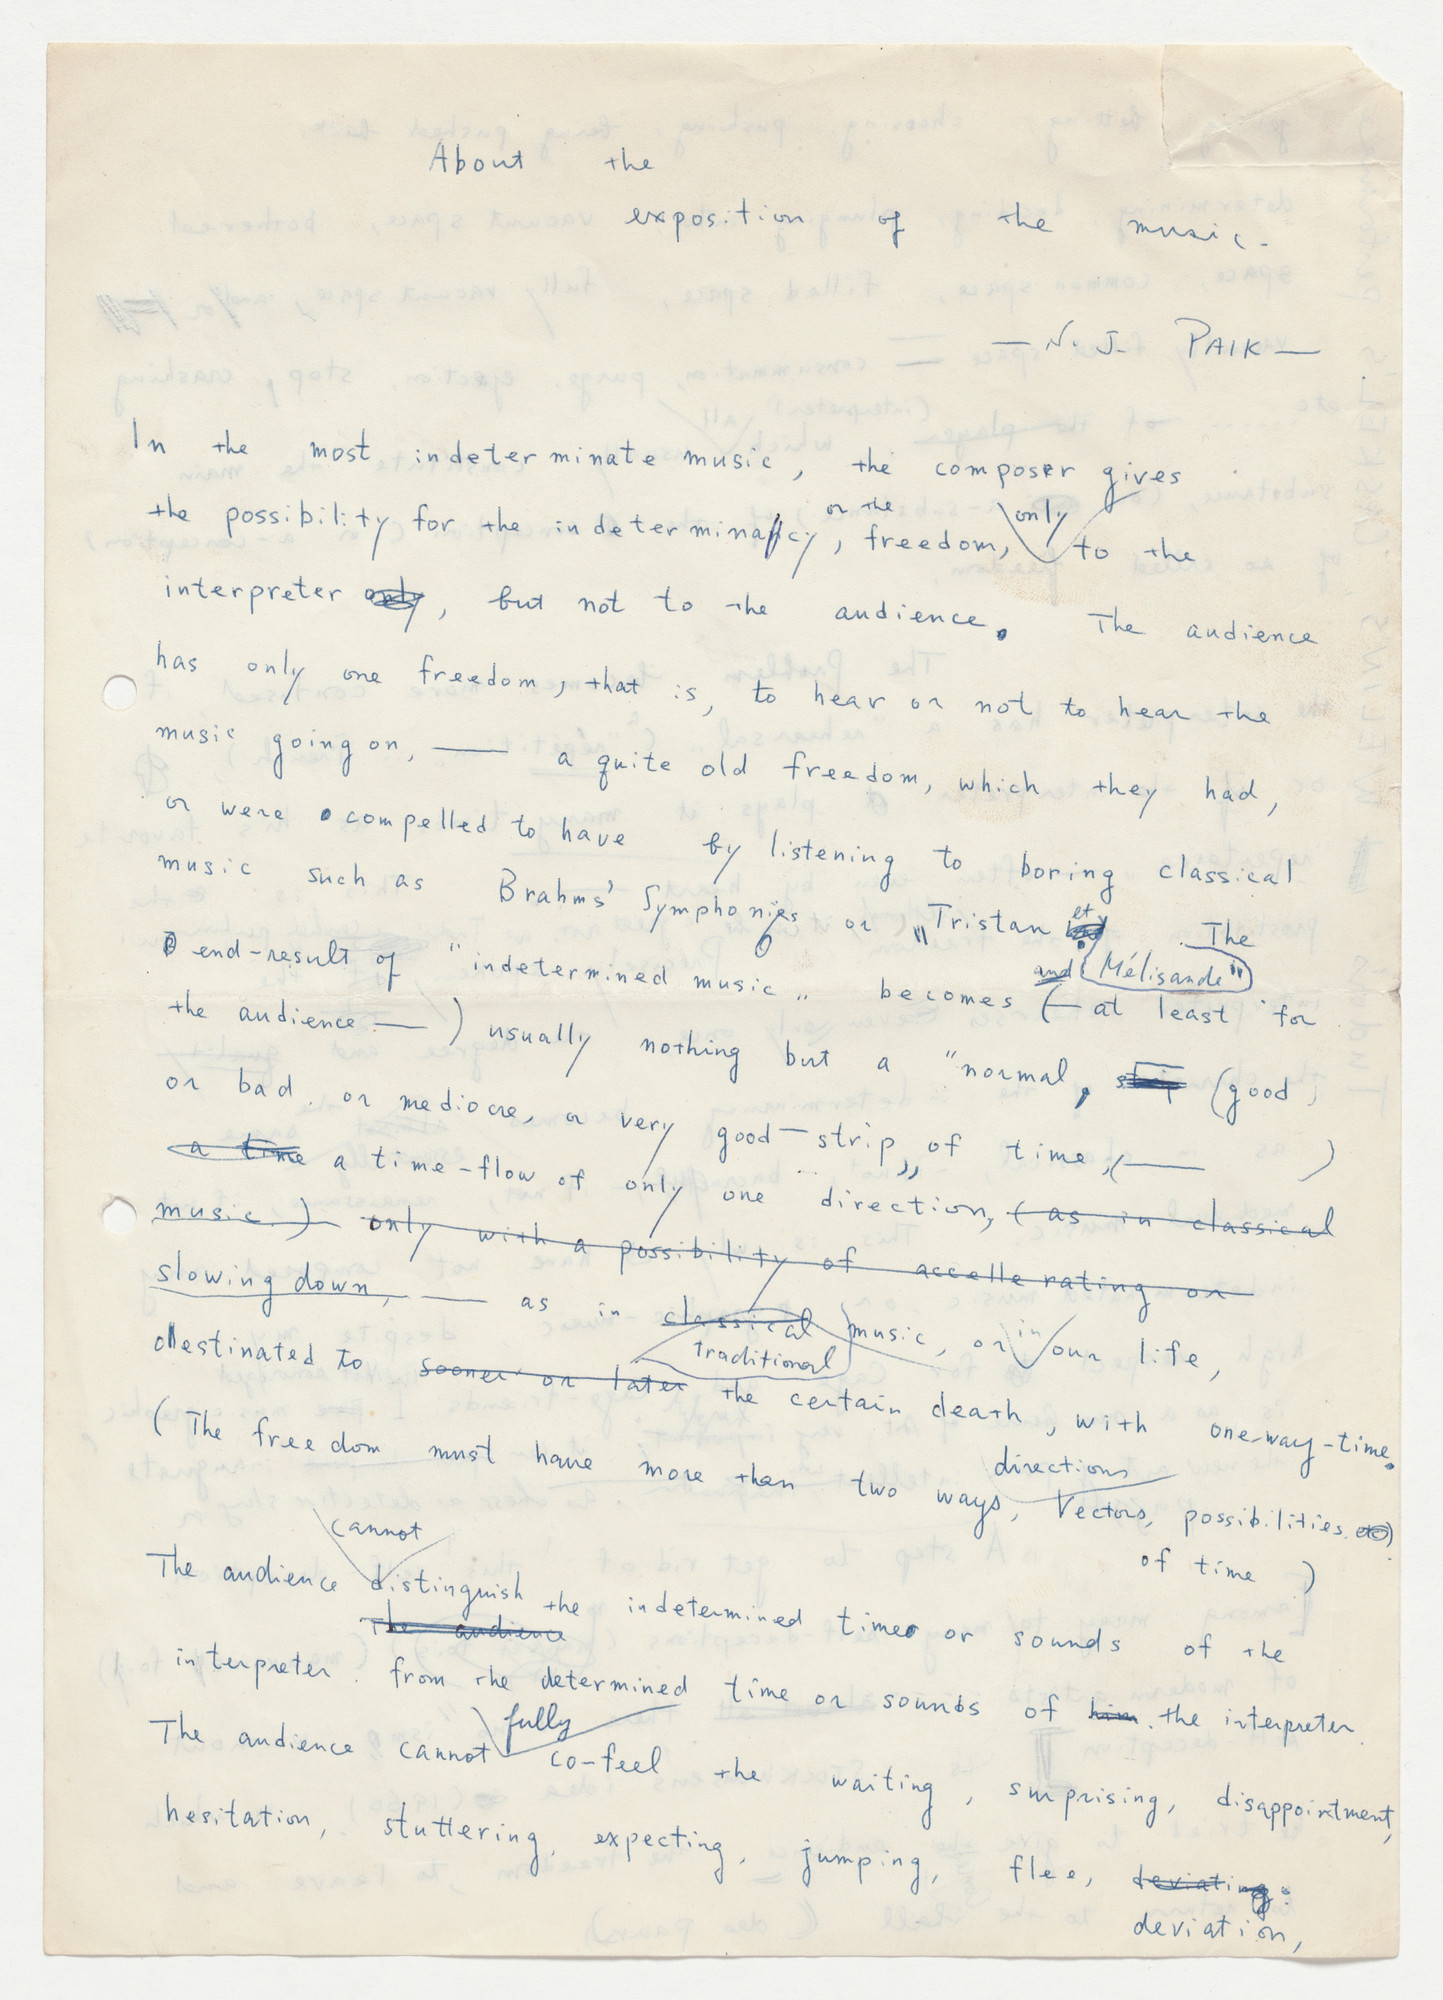 About the
exposition of the music.
— N. J. PAIK —
In the most indeterminate music, the composer gives
the possibility for the indeterminacy, or the freedom, only to the
interpreter only, but not to the audience. The audience
has only one freedom, that is, to hear or not to hear the
music going on, —— a quite old freedom, which they had,
or were compelled to have by listening to boring classical
music such as Brahms' Symphonies or „Tristan et
and Mélisande" . The
end-result of "indetermined music„ becomes (— at least for
the audience —) usually nothing but a "normal, strip (good,
or bad. or mediocre, or very good — strip„ of time, (—— )
a time a time-flow of only one direction, (as in classical
music.) only with a possibility of accellerating or
slowing down, —— as in classical traditional music, or in our life,
destinated to sooner or later the certain death, with one-way-time.
(The freedom must have more than two ways, directions Vectors, possibilities etc)
of time )
The audience cannot distinguish the indetermined time or sounds of the
The audience
interpreter. from the determined time or sounds of him. the interpreter.
The audience cannot fully co-feel the waiting, surprising, disappointment,
hesitation, stuttering, expecting, jumping, flee, deviating.
deviation,